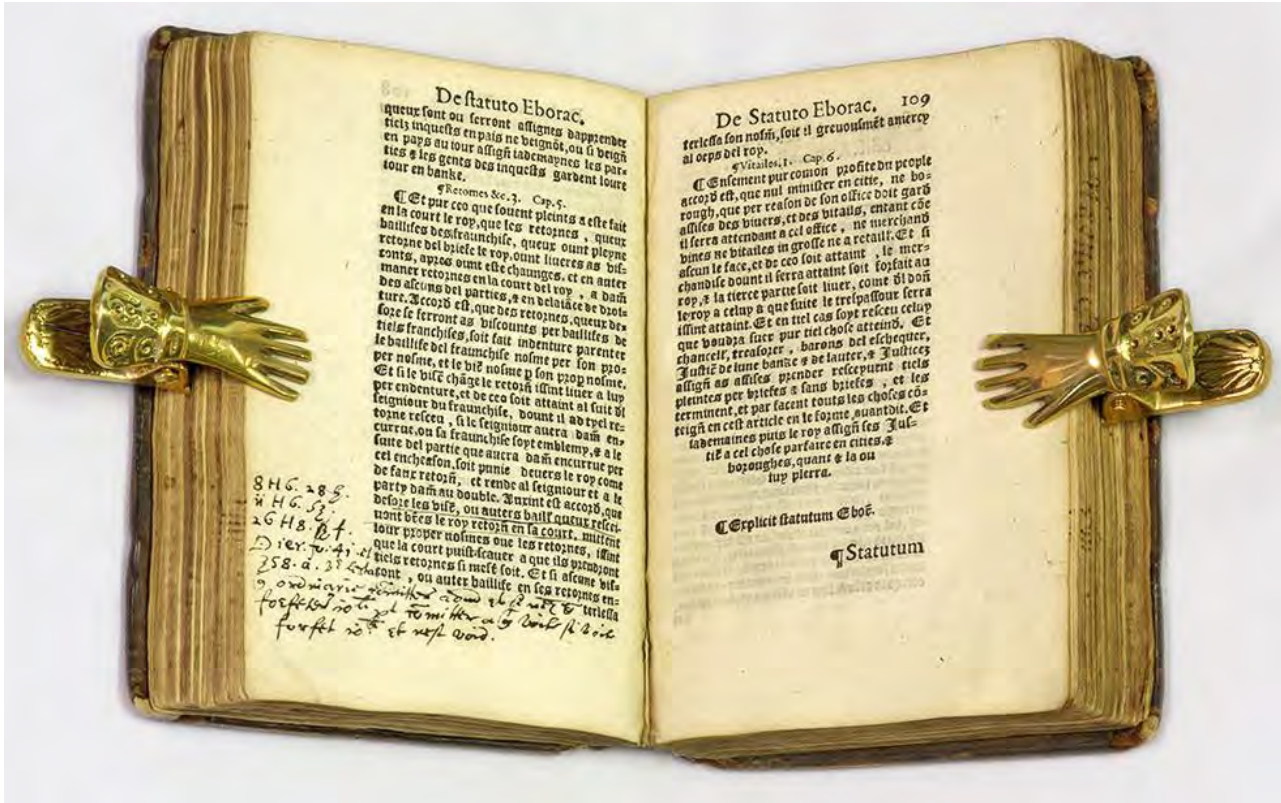 De statuto Eborac.
queux sont ou serront assignes dapprender
tielz inquests en pais ne veignōt, ou si veigñ
en pays au iour assigñ iademaynes les par=
ties & les gents des inquests gardent loure
iour en banke.
¶Retornes &c. 3. Cap. 5.
¶Et pur ceo que souent pleints a este fait
en la court le roy, que les retornes, queux
baillifes des fraunchise, queux ount pleyne
retorne del briefe le roy, ount liueres as vis=
conts, apres ount este chaunges, et en auter
maner retornes en la court del roy, a dam̄
des ascuns del parties, & en delaiāce de droi=
ture. Accord est, que des retornes, queux de=
sore se ferront as viscounts per baillifes de
tiels franchises, soit fait indenture parenter
le baillife del fraunchise nosme per son pro=
per nosme, et le vic̄ nosme p̄ son prop nosme.
Et si le visc̄ chāge le retorñ issint liuer a luy
per endenture, et de ceo soit attaint al suit dl
seigniour du fraunchise, dount il ad tyel re=
torne resceu, si le seigniour auera dam̄ en=
currue, ou sa fraunchise soyt emblemy, & a le
suite del partie que auera dam̄ encurrue per
cel encheason, soit punie deuers le roy come
de faux retorñ, et rende al seigniour et a le
party dam̄ au double. Auxint est accord, que
desore les visc̄, ou auters baill̄ queux rescei=
uont bēes le roy retorñ en sa court, mittent
lour proper nosmes oue les retornes, issint
que la court puist scauer a que ils prendront
tiels retornes si mest soit. Et si ascune vis=
cont, ou auter baillife en ses retornes en=
terlessa
8 H 6. 28
11 H 6. 53
26 H 8.
Dier. fo. 41. et
358. a.
forfet et nest void.
De Statuto Eborac. 109
terlessa son nosm̄, soit il greuousmēt amercy
al oeps del roy.
¶Vitailes. 1. Cap. 6.
¶Ensement pur comon profite du people
accord est, que nul minister en citie, ne bo=
rough, que per reason de son office doit gard
assises des viuers, et des vitails, entant cōe
il serra attendant a cel office, ne merchand
vines ne vitailes in grosse ne a retaile. Et si
ascun le face, et de ceo soit attaint, le mer=
chandise dount il serra attaint soit forfait au
roy, & la tierce partie soit liuer, come dl doñ
le roy a celuy a que suite le trespassour serra
issint attaint. Et en tiel cas soyt resceu celuy
que voudra suer pur tiel chose atteind. Et
chancell̄, treasorer, barons del eschequer,
Justic̄ de lune banke & de lauter, & Justicez
assigñ as assises prender resceyuent tiels
pleintes per briefes & sans briefes, et les
terminent, et par facent touts les choses cō=
teigñ en cest article en le forme auantdit. Et
iademaines puis le roy assigñ ses Jus=
tic̄ a cel chose parfaire en cities, &
boroughes, quant & la ou
luy pleera.
¶Explicit statutum Eboc̄.
¶Statutum